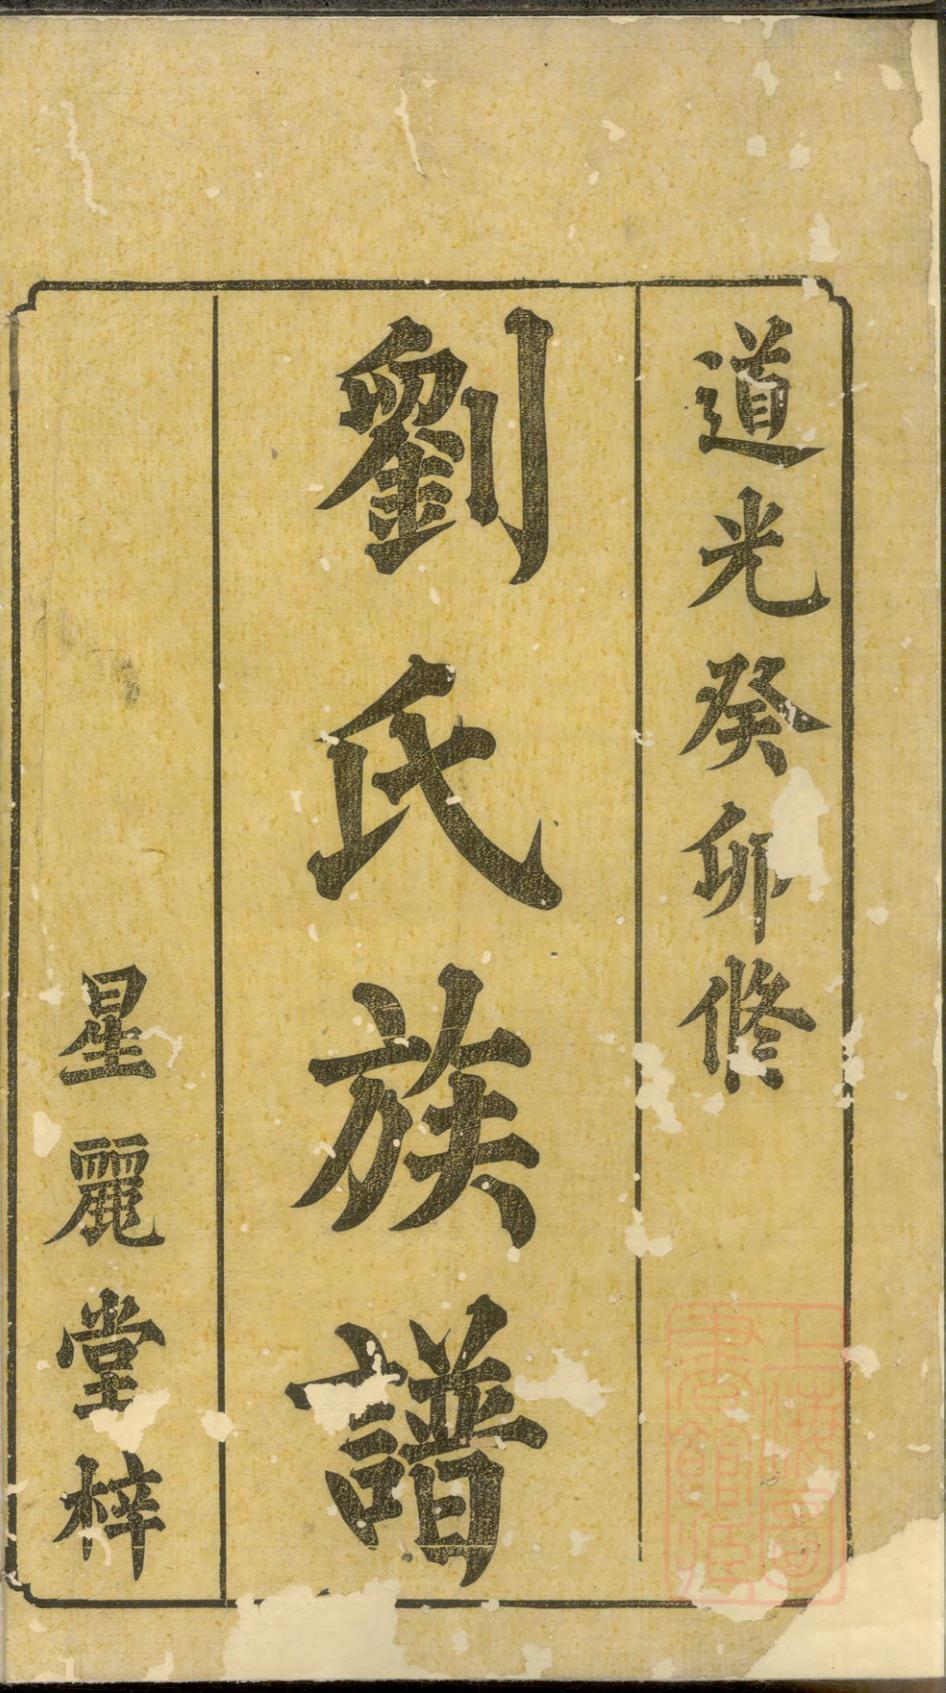 道光癸卯修
劉氏族譜
星麗堂梓
上海圖書館藏